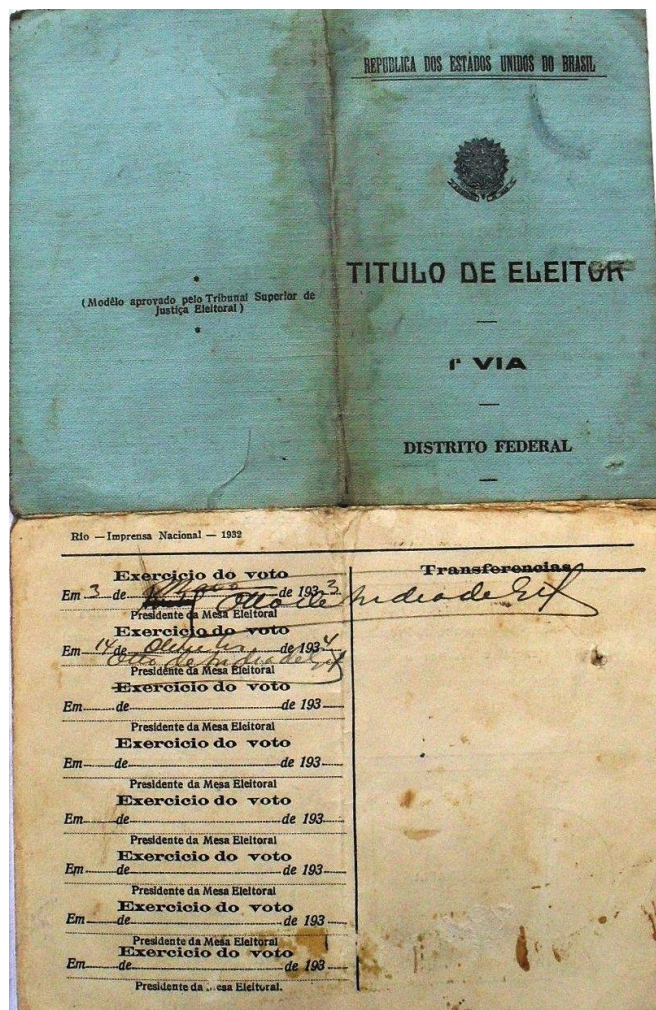 REPUBLICA DOS ESTADOS UNIDOS DO BRASIL
TITULO DE ELEITOR
1ª VIA
DISTRITO FEDERAL
(Modêlo aprovado pelo Tribunal Superior de
Justiça Eleitoral)
Rio — Imprensa Nacional — 1932
Exercicio do voto
Em 3 de Maio de 1933
Otto de Andrade Gil
Presidente da Mesa Eleitoral
Exercicio do voto
Em 14 de de 1934
Otto de Andrade Gil
Presidente da Mesa Eleitoral
Exercicio do voto
Em de de 193
Presidente da Mesa Eleitoral
Exercicio do voto
Em de de 193
Presidente da Mesa Eleitoral
Exercicio do voto
Em de de 193
Presidente da Mesa Eleitoral
Exercicio do voto
Em de de 193
Presidente da Mesa Eleitoral
Exercicio do voto
Em de de 193
Presidente da Mesa Eleitoral
Exercicio do voto
Em de de 193
Presidente da Mesa Eleitoral.
Transferencias